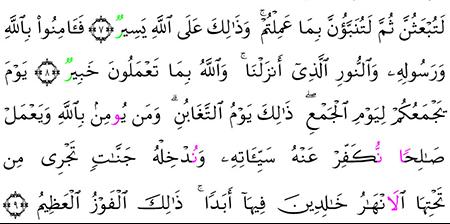 لَتُبْعَثُنَّ ثُمَّ لَتُنَبَّؤُنَّ بِمَا عَمِلْتُمْ ۚ وَذَٰلِكَ عَلَى ٱللَّهِ يَسِيرٌ ﴿٧﴾ فَـَٔامِنُوا۟ بِٱللَّهِ
وَرَسُولِهِۦ وَٱلنُّورِ ٱلَّذِىٓ أَنزَلْنَا ۚ وَٱللَّهُ بِمَا تَعْمَلُونَ خَبِيرٌ ﴿٨﴾ يَوْمَ
يَجْمَعُكُمْ لِيَوْمِ ٱلْجَمْعِ ۖ ذَٰلِكَ يَوْمُ ٱلتَّغَابُنِ ۗ وَمَن يُومِنۢ بِٱللَّهِ وَيَعْمَلْ
صَـٰلِحًا نُّكَفِّرْ عَنْهُ سَيِّـَٔاتِهِۦ وَنُدْخِلْهُ جَنَّـٰتٍ تَجْرِى مِن
تَحْتِهَا ٱلَانْهَـٰرُ خَـٰلِدِينَ فِيهَآ أَبَدًا ۚ ذَٰلِكَ ٱلْفَوْزُ ٱلْعَظِيمُ ﴿٩﴾